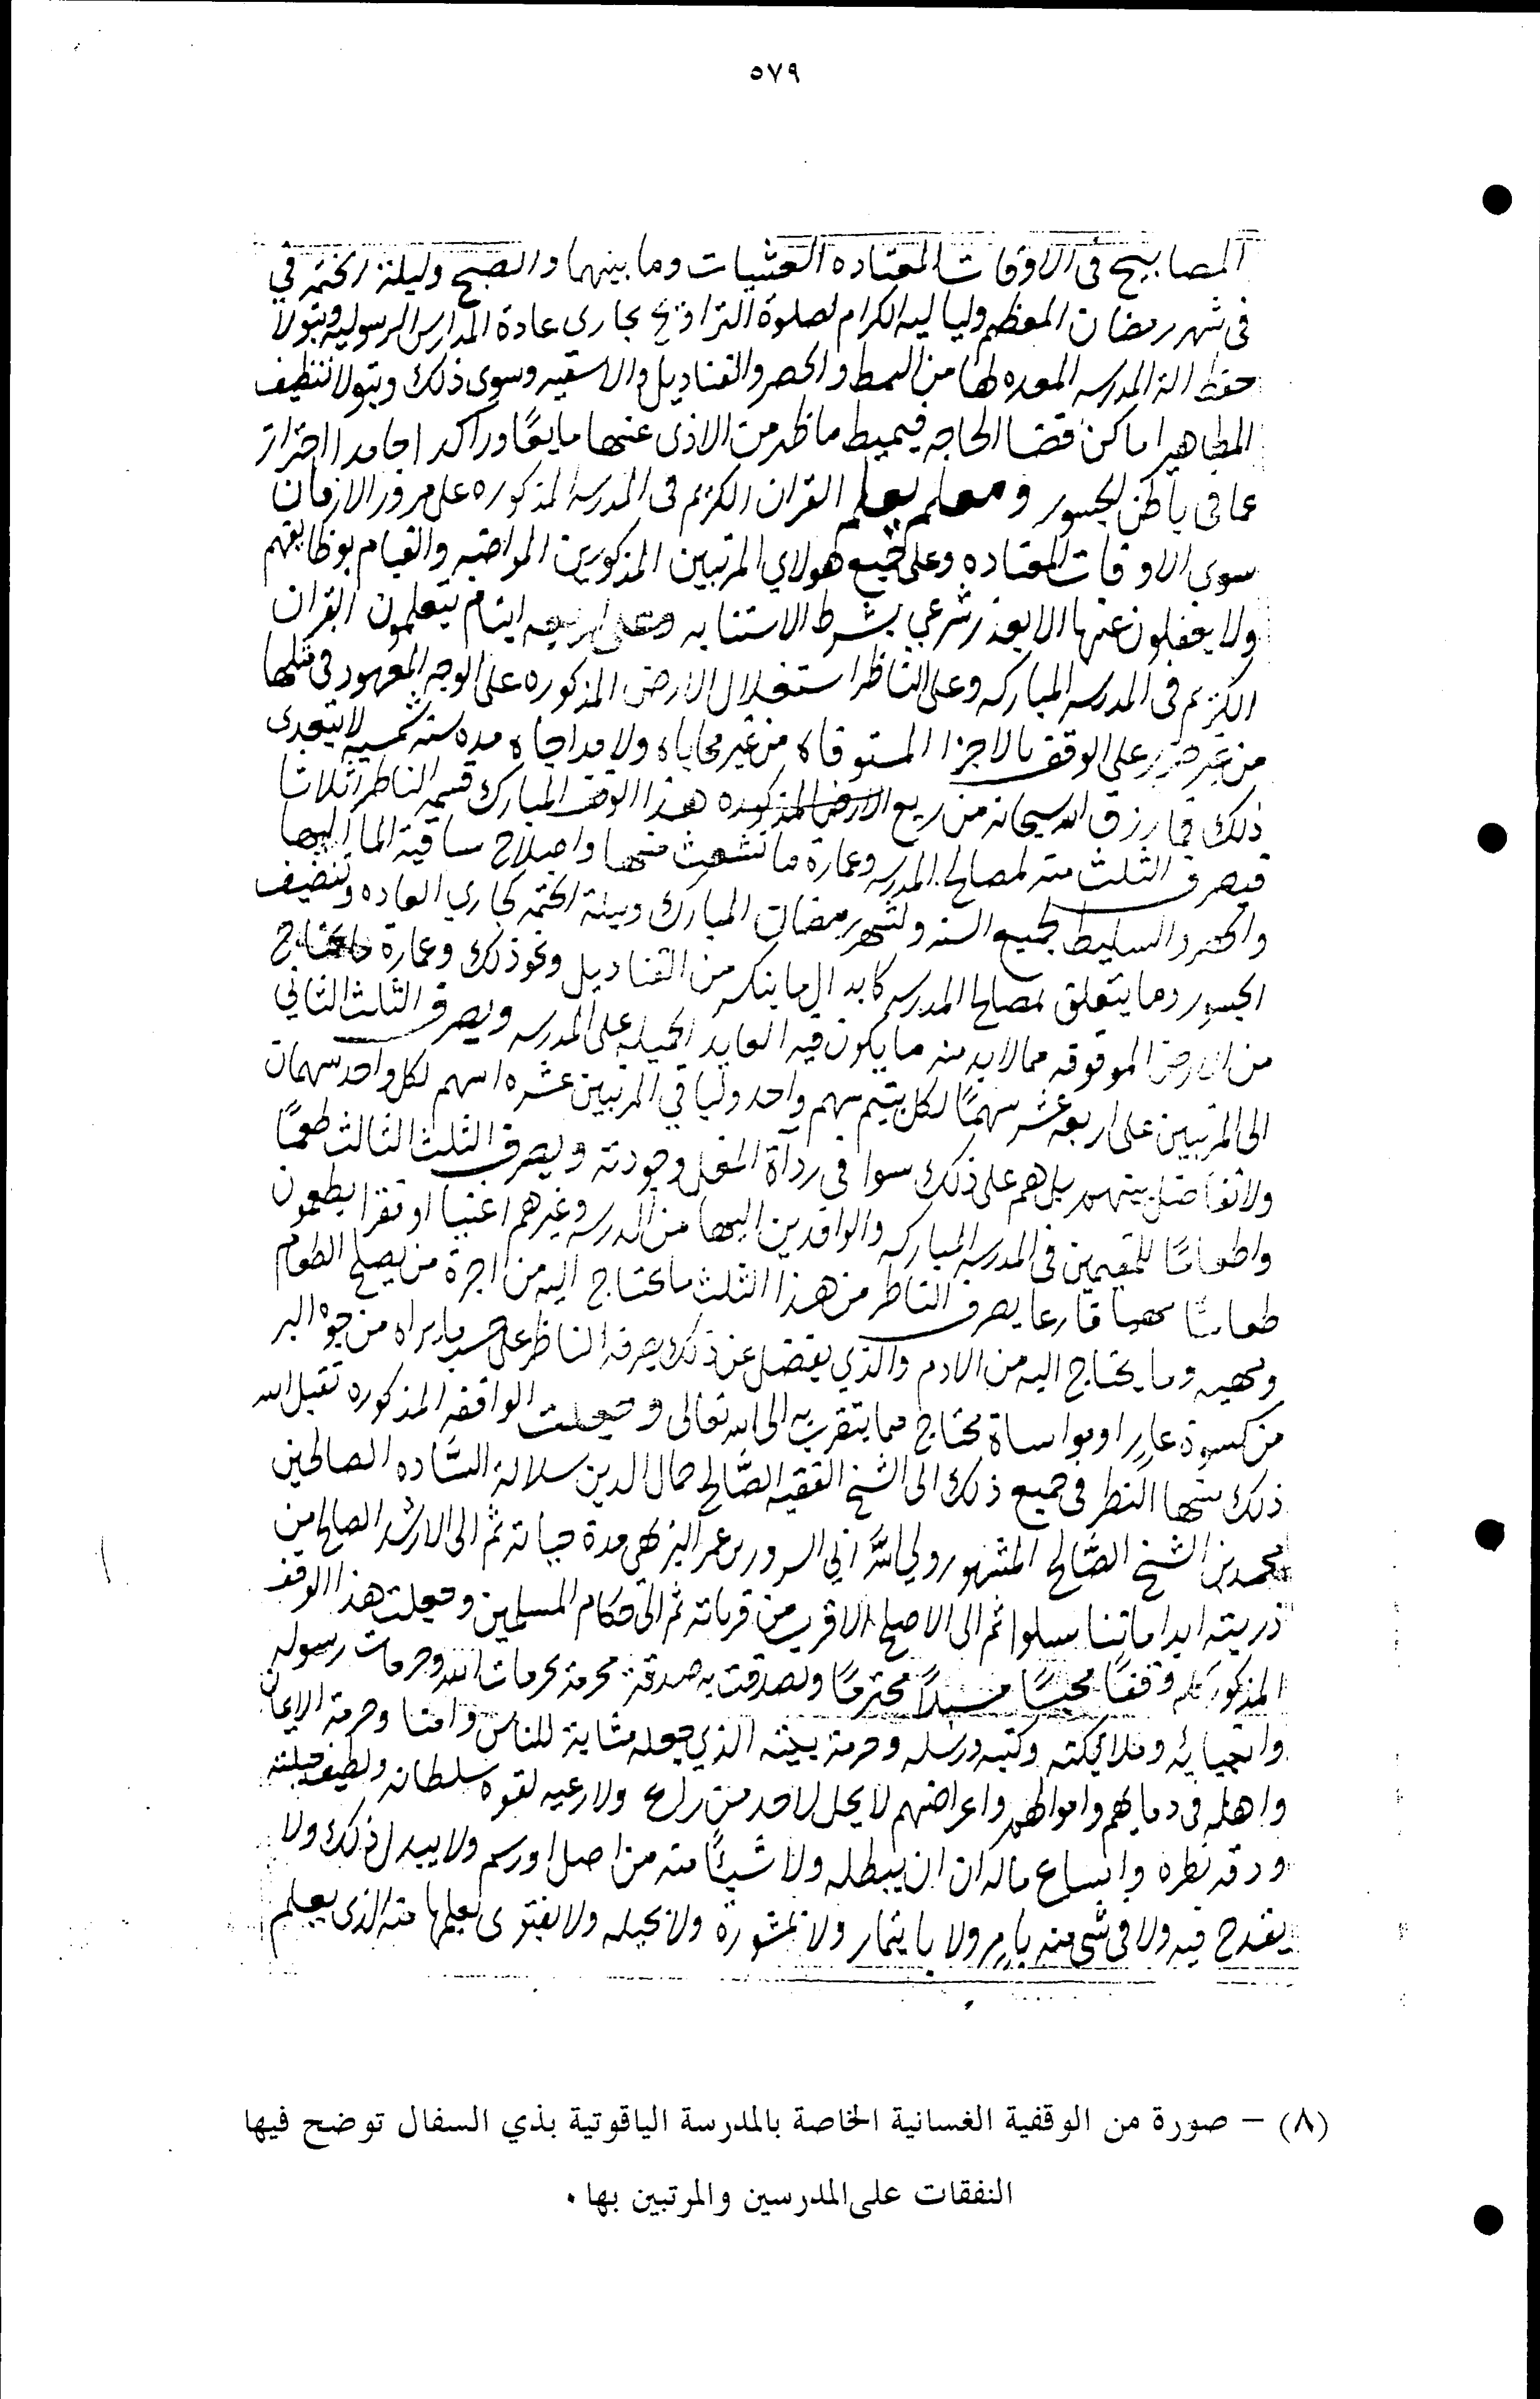 ٥٧٩
المصابيح في الاوقات المعتاده العشيات وما بينهما والصبح وليلة الختمه في
في شهر رمضان المعظم ولياليه الكرام لصلوة التراويح بجاري عادة المدارس الرسوليه ويتولا
حفظ الة المدرسه المعده لها من البسط والحصر والقناديل والاسقيه وسوى ذلك ويتولا تنظيف
المطاهير اماكن قضا الحاجه فيميط ما ظهر من الاذى عنها مايعًا وراكد اجامدا احتراز
عما في باطن الجسور ومعلم يعلم القران الكريم في المدرسه المذكوره على مرور الازمان
سوى الاوقات المعتاده وعلى جميع هولاي المرتبين المذكورين المواضبه والقيام بوظايفهم
ولا يغفلون عنها الا بعذر شرعي بشرط الاستنابه وعلى اربعه ايتام يتعلمون القران
الكريم في المدرسه المباركه وعلى الناظر استغلال الارض المذكوره على الوجه المعهود في مثلها
من غير ضرر على الوقف بالاجزا المستوفاه من غير محاباه ولا مداجاه مده سنه شمسيه لا يتعدى
ذلك فما رزق الله سبحانه من ريع الارض المذكوره هذا الوقف المبارك قسمه الناظر اثلاثا
فيصرف الثلث منه لمصالح المدرسه وعمارة ما تشعث منها واصلاح ساقية الما اليها
والحصر والسليط لجميع السنه ولشهر رمضان المبارك وليلة الختمه كجاري العاده وتنضيف
الجسور وما يتعلق لمصالح المدرسه كابدال ما ينكسر من القناديل ونحو ذلك وعمارة ما يحتاج
من الارض الموقوفه مما لابد منه ما يكون فيه العايد الجميله على المدرسه ويصرف الثلث الثاني
الى المرتبين على اربعة عشر سهمًا لكل يتيم سهم واحد ولباقي المرتبين عشره اسهم لكل واحد سهمان
ولا تفاضل بينهم بل هم على ذلك سوا في رداة المغل وجودته ويصرف الثلث الثالث طعمًا
واطعامًا للمقيمين في المدرسه المباركه والوافدين اليها من الدرسه وغيرهم اغنيا او فقرا يطعمون
طعامًا مهيا قارعا يصرف الناظر من هذا الثلث ما يحتاج اليه من اجرة من يصلح الطعام
ويهييه وما يحتاج اليه من الادم والذي يفضل عن ذلك يصرفه الناظر على حسب ما يراه من جوه البر
من كسوة عارٍ او مواساة محتاج مما يتقرب به الى الله تعالى وجعلت الواقفه المذكوره تقبل الله
ذلك منها النظر في جميع ذلك الى الشيخ الفقيه الصَّالح جمال الدين سلالة السَّاده الصالحين
محمد بن الشيخ الصَّالح المشهور ولي الله ابي السرور بن عمر البزهي مدة حياته ثم الى الارشد الصالح من
ذريته ابدا ماتناسلوا ثم الى الاصلح الاقرب من قرباته ثم الى حكام المسلمين وجعلت هذا الوقف
المذكور وقفًا محبسًا مسبلاً محترمًا وتصدقت به صدقة محرمة بحرمات الله وحرمات رسوله
وانبيائه وملايكته وكتبه ورسله وحرمة بيته الذي جعله مثابة للناس وامنا وحرمة الايمان
واهله في دمايهم واموالهم واعراضهم لا يحل لاحد من راع ولا رعيه لقوه سلطانه ولطيف حيلته
ودقة نظره واتساع ماله ان ان يبطله ولا شيئًا منه من اصل او رسم ولا يبدل ذلك ولا
يقدح فيه ولا في شي منه بامر ولا بايتمار ولا بمشورة ولا بحيله ولا بفتوى يعلمها منه الذي يعلم
(٨) – صورة من الوقفية الغسانية الخاصة بالمدرسة الياقوتية بذي السفال توضح فيها
النفقات على المدرسين والمرتبين بها .